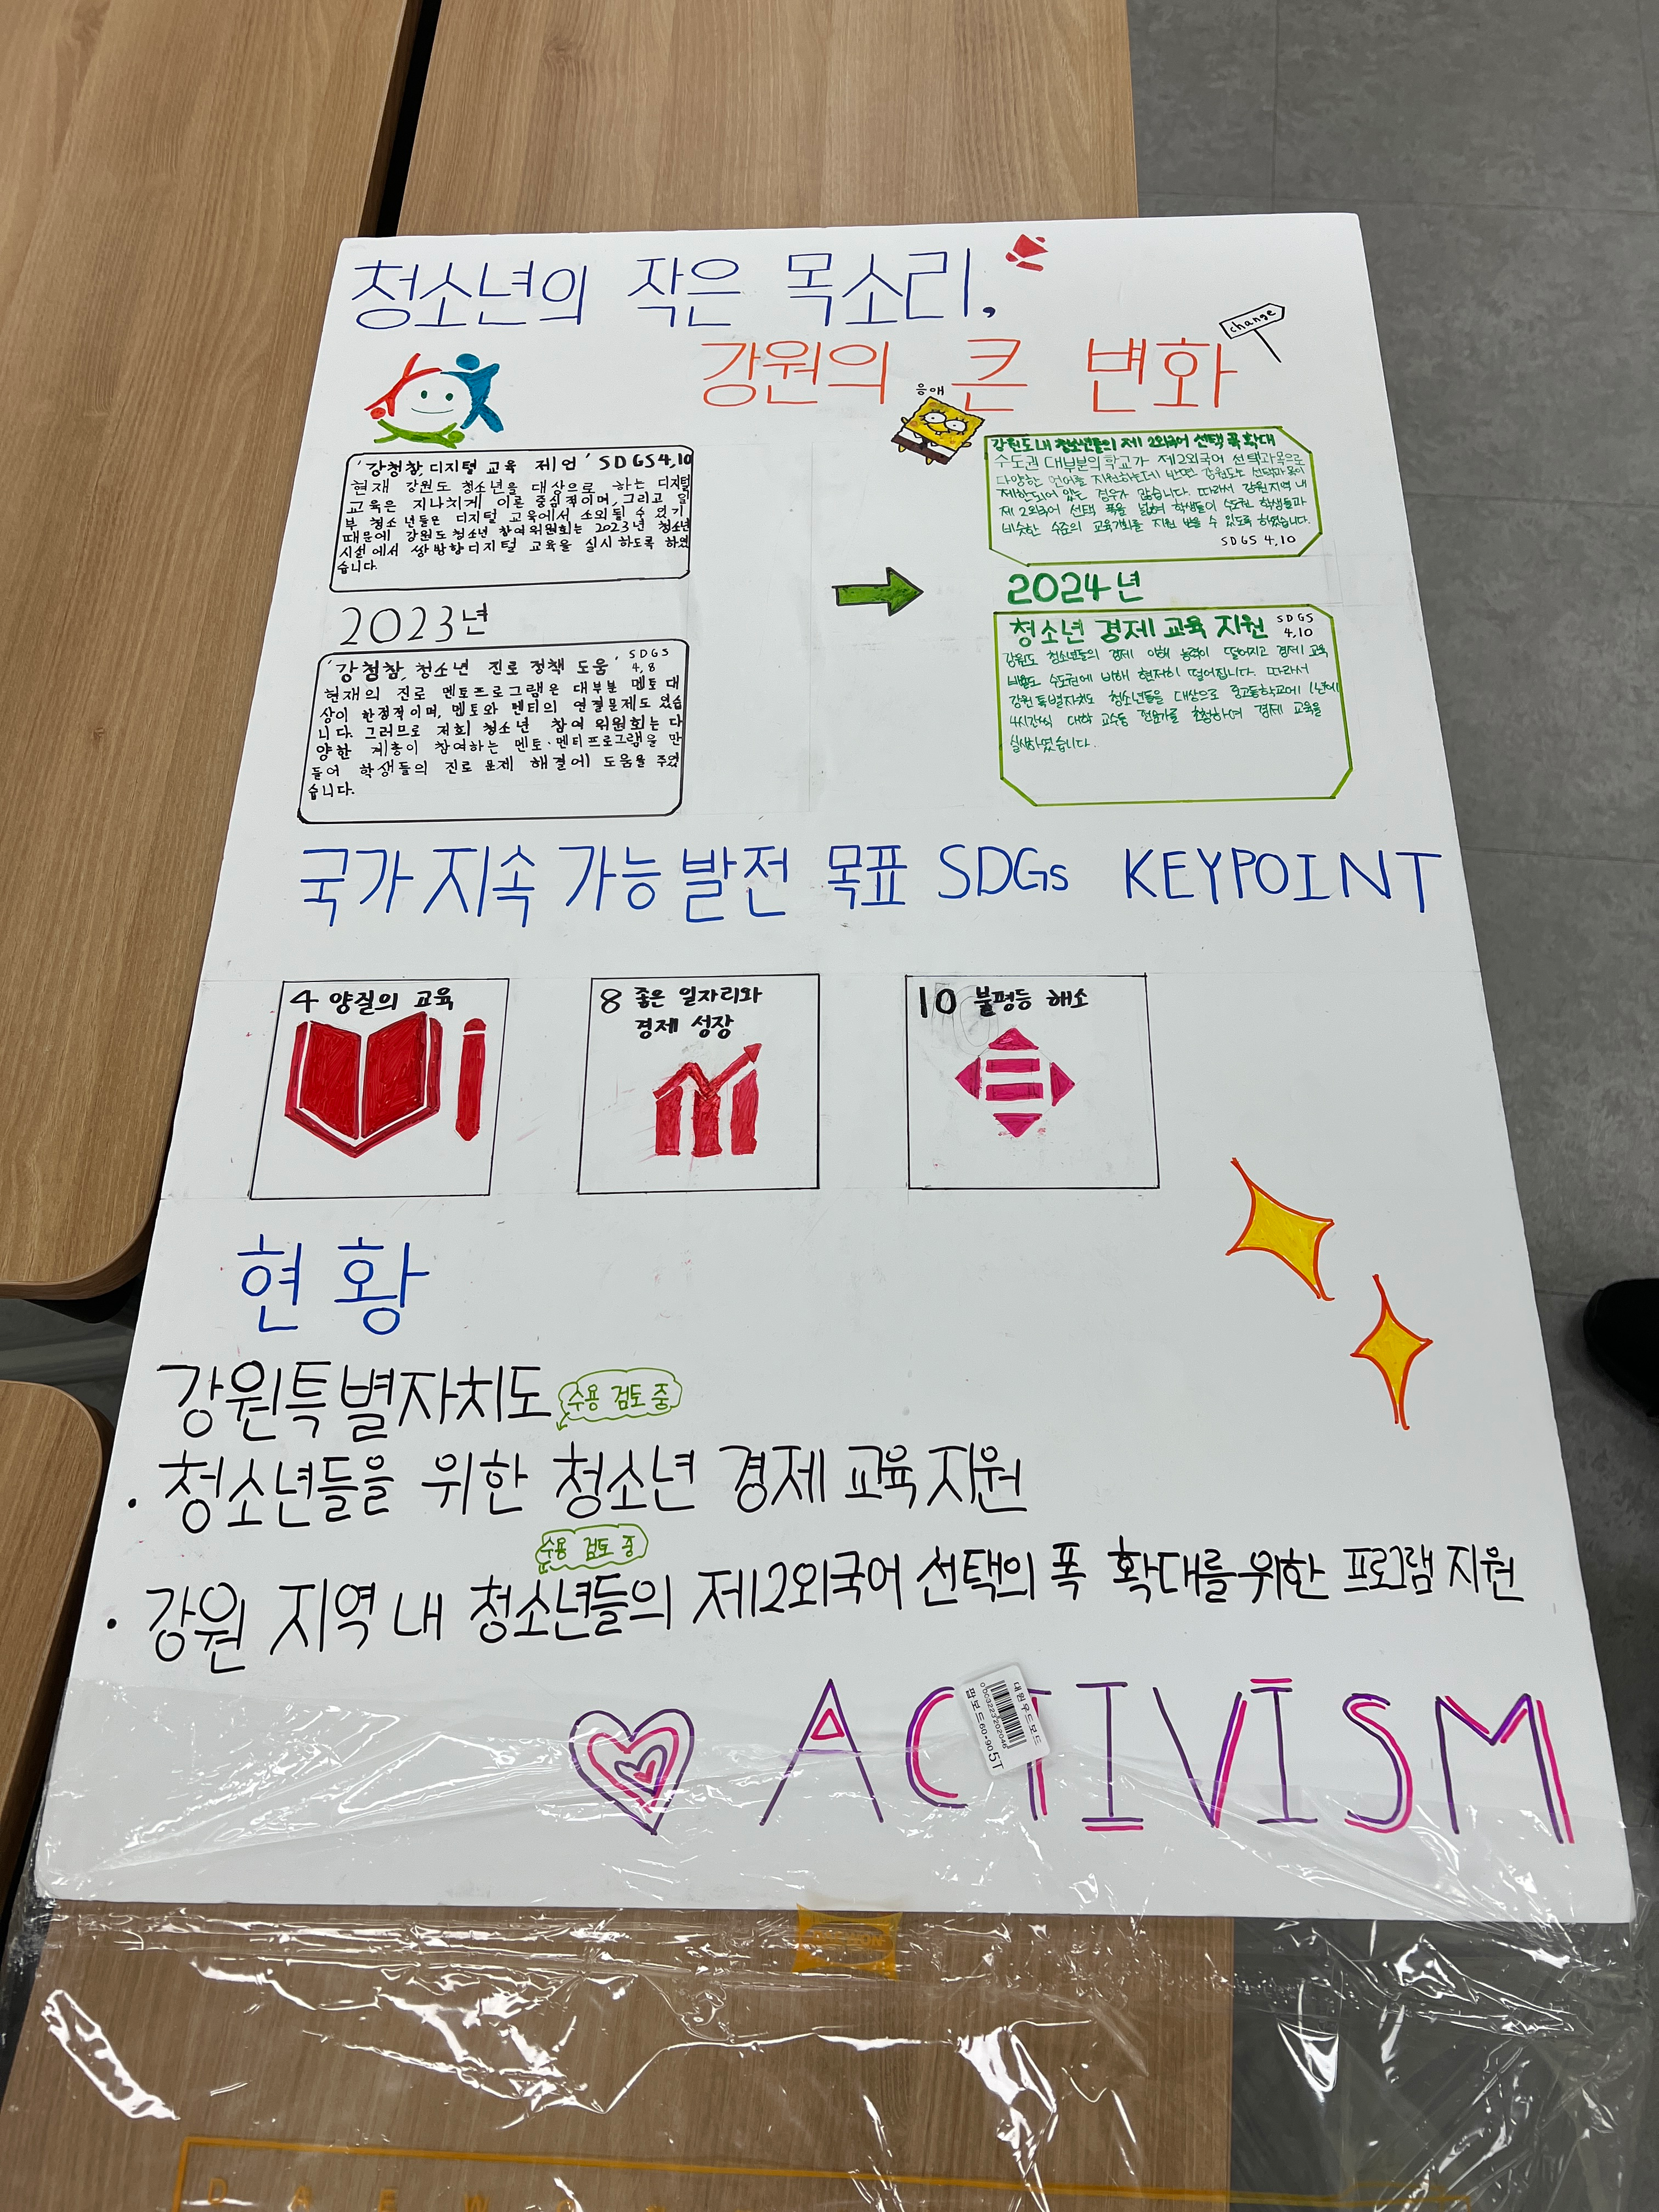 청소년의 작은 목소리,
change
강원의 큰 변화
응애
'강청참, 디지털 교육 제언' SDGS 4,10
현재 강원도 청소년을 대상으로 하는 디지털
교육은 지나치게 이론 중심적이며, 그리고 일
부 청소년들은 디지털 교육에서 소외될 수 있기
때문에 강원도 청소년 참여 위원회는 2023년 청소년
시설에서 쌍방향 디지털 교육을 실시하도록 하였
습니다.
2023년
'강청참, 청소년 진로 정책 도움' SDGS
4,8
현재의 진로 멘토프로그램은 대부분 멘토 대
상이 한정적이며, 멘토와 멘티의 연결문제도 있습
니다. 그러므로 저희 청소년 참여 위원회는 다
양한 계층이 참여하는 멘토·멘티프로그램을 만
들어 학생들의 진로 문제 해결에 도움을 주었
습니다.
강원도 내 청소년들의 제 2외국어 선택 폭 확대
수도권 대부분의 학교가 제2외국어 선택과목으로
다양한 언어를 지원하는데 반면, 강원도는 선택과목이
제한되어 있는 경우가 많습니다. 따라서 강원지역 내
제 2외국어 선택 폭을 넓혀 학생들이 수도권 학생들과
비슷한 수준의 교육기회를 지원 받을 수 있도록 하였습니다.
SDGS 4,10
2024년
청소년 경제 교육 지원 SDGS
4,10
강원도 청소년들의 경제 이해 능력이 떨어지고 경제 교육
수도권에 비해 현저히 떨어집니다. 따라서
강원특별자치도 청소년들을 대상으로 중고등학교에 1년에
4시간씩 대학 교수등 전문가를 초청하여 경제 교육을
실행하였습니다.
국가 지속 가능 발전 목표 SDGs KEYPOINT
4 양질의 교육
8 좋은 일자리와
경제 성장
10 불평등 해소
현황
강원특별자치도
수용 검토 중
· 청소년들을 위한 청소년 경제 교육 지원
수용 검토 중
· 강원 지역 내 청소년들의 제2외국어 선택의 폭 확대를 위한 프로그램 지원
ACTIVISM
대원우드보드
0003223202046
팝보드60-90 5T
DAEWO